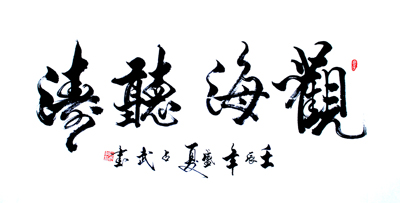 觀海聽濤
壬辰年盛夏志武書